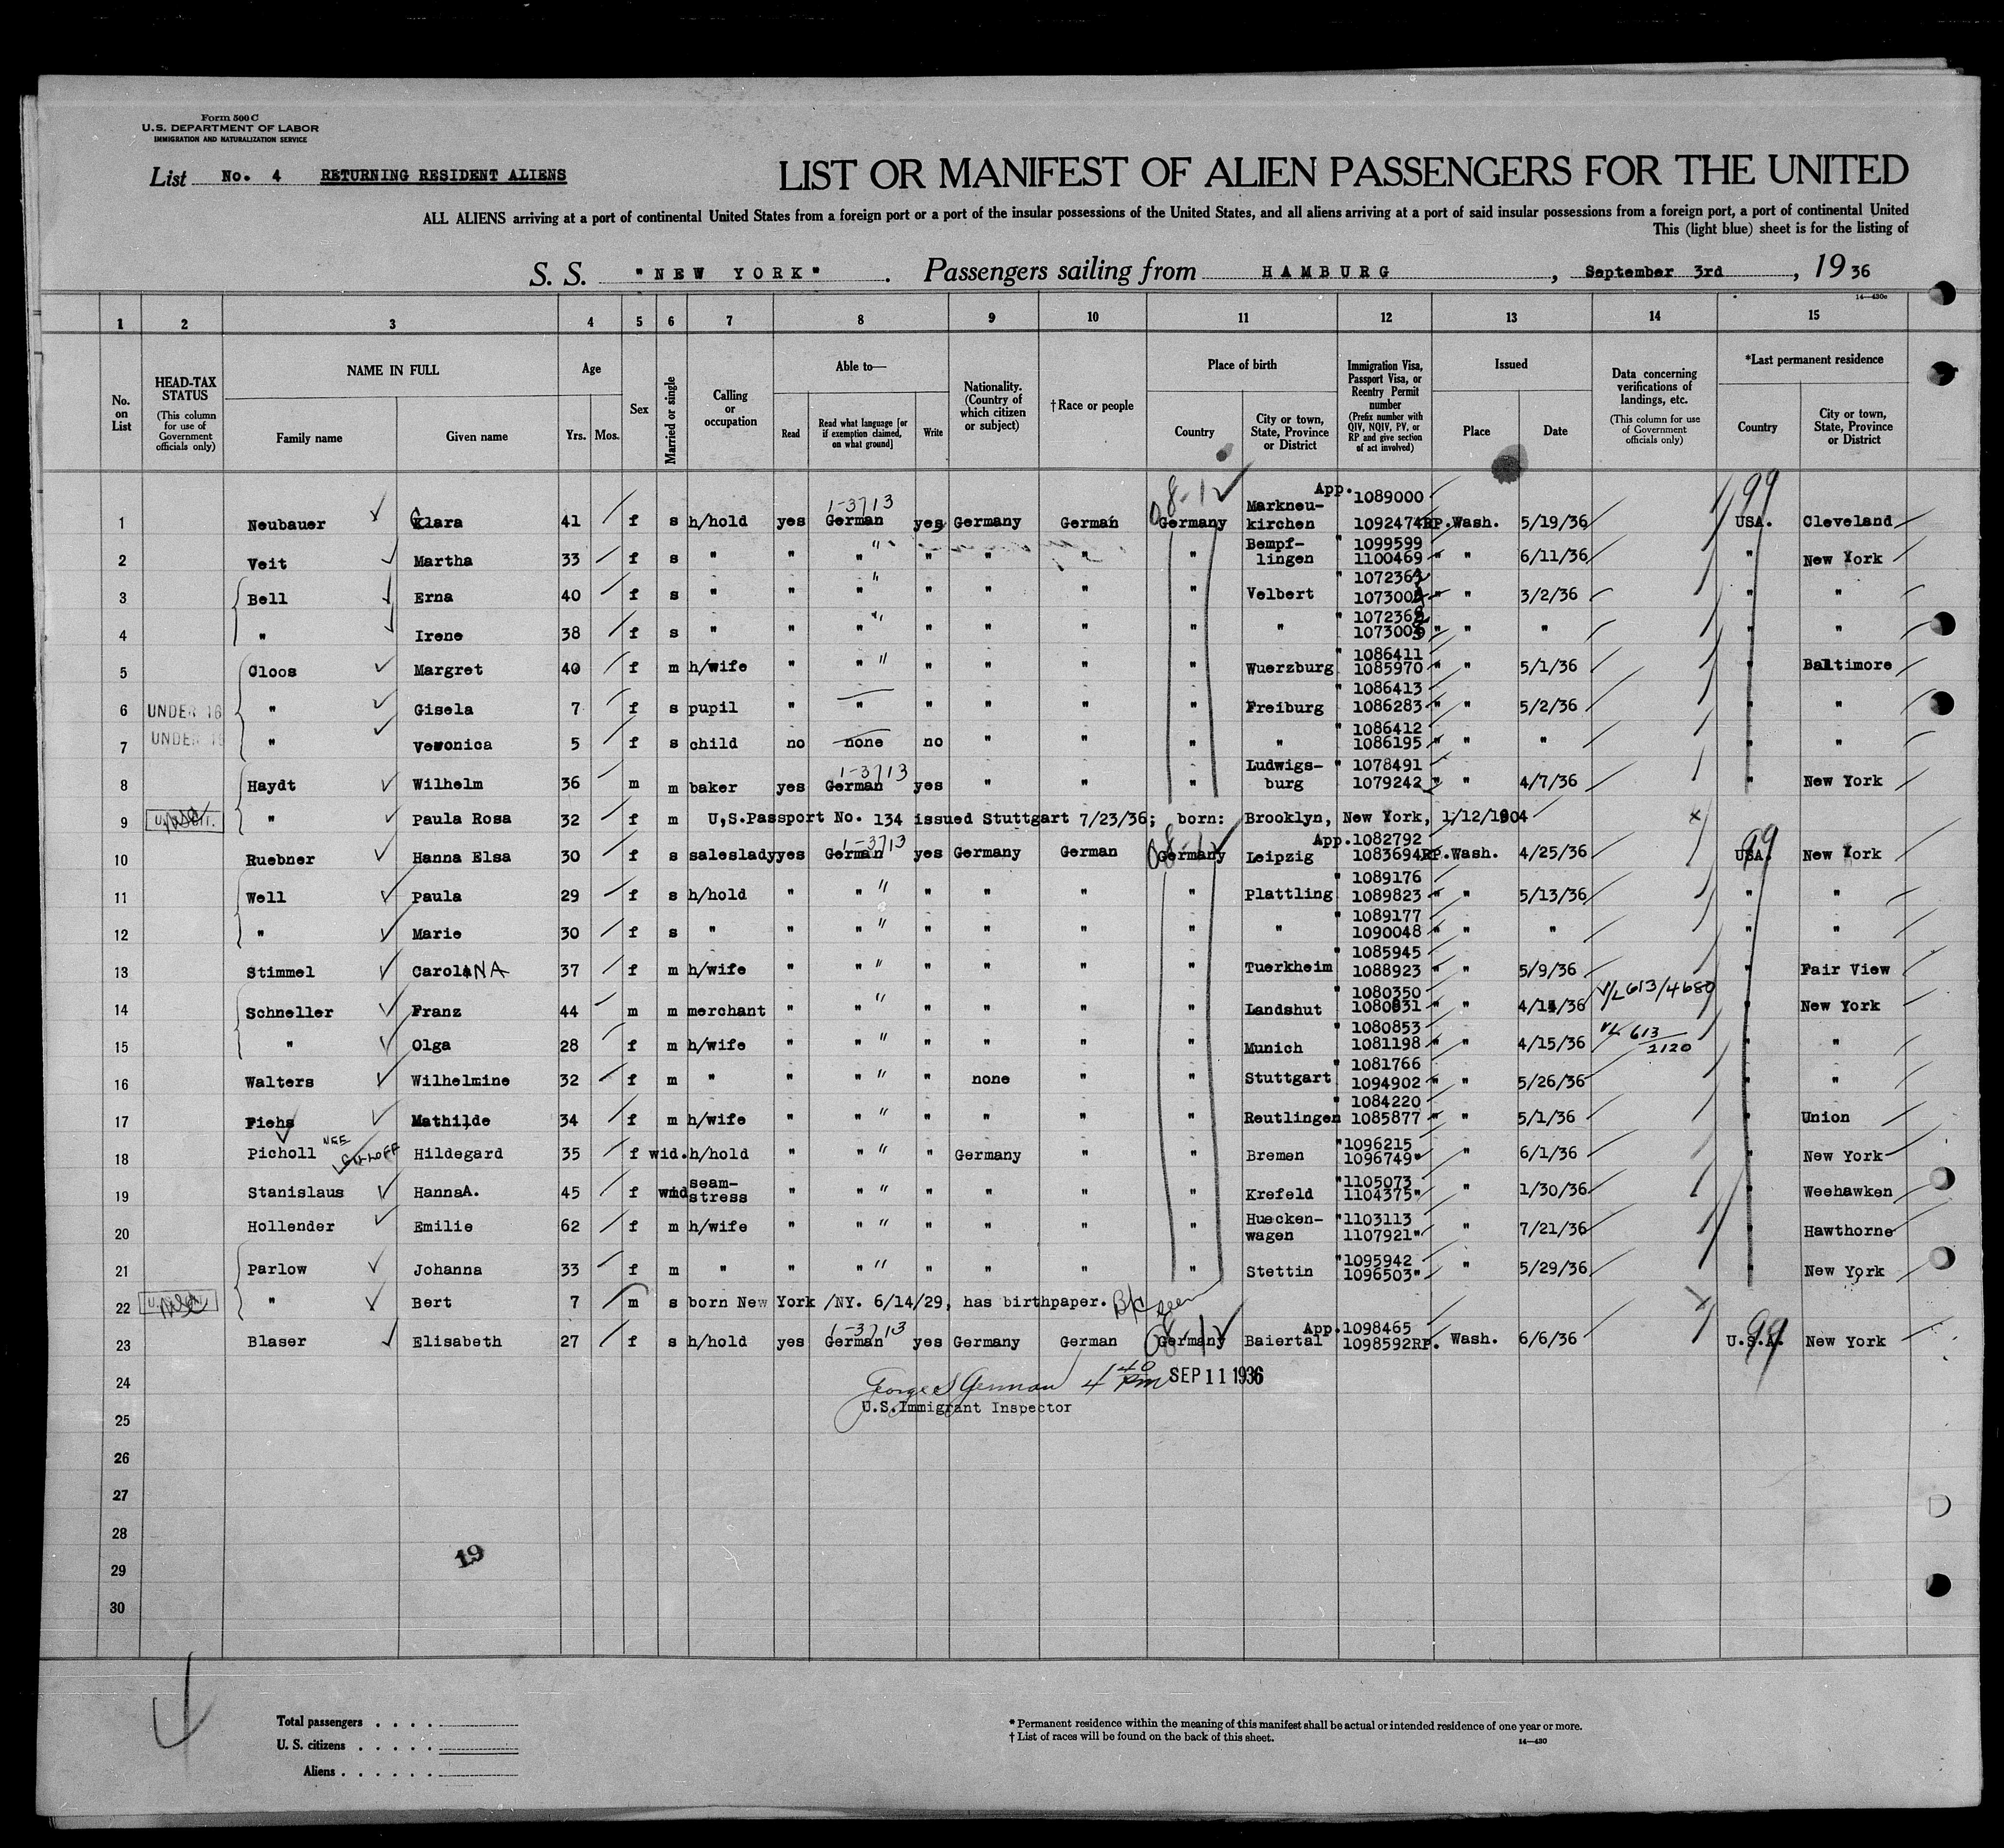 Form 500 C
U.S. DEPARTMENT OF LABOR
IMMIGRATION AND NATURALIZATION SERVICE
List No. 4 RETURNING RESIDENT ALIENS
LIST OR MANIFEST OF ALIEN PASSENGERS FOR THE UNITED
ALL ALIENS arriving at a port of continental United States from a foreign port or a port of the insular possessions of the United States, and all aliens arriving at a port of said insular possessions from a foreign port, a port of continental United
This (light blue) sheet is for the listing of
S. S. "NEW YORK". Passengers sailing from HAMBURG, September 3rd, 1936
14—430c
1 2 3 4 5 6 7 8 9 10 11 12 13 14 15
No. on List
HEAD-TAX STATUS (This column for use of Government officials only)
NAME IN FULL Family name Given name
Age Yrs. Mos.
Sex
Married or single
Calling or occupation
Able to— Read Read what language [or if exemption claimed, on what ground] Write
Nationality. (Country of which citizen or subject)
†Race or people
Place of birth Country City or town, State, Province or District
Immigration Visa, Passport Visa, or Reentry Permit number (Prefix number with QIV, NQIV, PV, or RP and give section of act involved)
Issued Place Date
Data concerning verifications of landings, etc. (This column for use of Government officials only)
*Last permanent residence Country City or town, State, Province or District
1 Neubauer Clara 41 f s h/hold yes 1-3713 German yes Germany German 08-12 Germany Markneu-kirchen App. 1089000 1092474RP. Wash. 5/19/36 199 USA. Cleveland
2 Veit Martha 33 f s " " " " " " " Bempf-lingen " 1099599 1100469 " " 6/11/36 " New York
3 Bell Erna 40 f s " " " " " " " Velbert " 1072363 107300 " " 3/2/36 " "
4 " Irene 38 f s " " " " " " " " " 107236 107300 " " " " "
5 Cloos Margret 40 f m h/wife " " " " " " Wuerzburg " 1086411 1085970 " " 5/1/36 " Baltimore
6 UNDER 16 " Gisela 7 f s pupil " " " " " " Freiburg " 1086413 1086283 " " 5/2/36 " "
7 UNDER 16 " Veronica 5 f s child no none no " " " " " 1086412 1086195 " " " " "
8 Haydt Wilhelm 36 m m baker yes 1-3713 German yes " " " Ludwigs-burg " 1078491 1079242 " " 4/7/36 " New York
9 " Paula Rosa 32 f m U,S.Passport No. 134 issued Stuttgart 7/23/36; born: Brooklyn, New York, 1/12/1904 x
10 Ruebner Hanna Elsa 30 f s saleslady yes 1-3713 German yes Germany German 08-12 Germany Leipzig App. 1082792 1083694RP. Wash. 4/25/36 99 USA. New York
11 Well Paula 29 f s h/hold " " " " " " Plattling " 1089176 1089823 " " 5/13/36 " "
12 " Marie 30 f s " " " " " " " " " 1089177 1090048 " " " " "
13 Stimmel CarolINA 37 f m h/wife " " " " " " Tuerkheim " 1085945 1088923 " " 5/9/36 " Fair View
14 Schneller Franz 44 m m merchant " " " " " " Landshut " 1080350 1080831 " " 4/14/36 V/L 613/4680 " New York
15 " Olga 28 f m h/wife " " " " " " Munich " 1080853 1081198 " " 4/15/36 VL 613/2120 " "
16 Walters Wilhelmine 32 f m " " " " none " " Stuttgart " 1081766 1094902 " " 5/26/36 " "
17 Fiehs Mathilde 34 f m h/wife " " " " " " Reutlingen " 1084220 1085877 " " 5/1/36 " Union
18 Picholl NEE Hildegard 35 f wid. h/hold " " " Germany " " Bremen "1096215 1096749" " 6/1/36 " New York
19 Stanislaus HannaA. 45 f wid seam-stress " " " " " " Krefeld "1105073 1104375" " 1/30/36 " Weehawken
20 Hollender Emilie 62 f m h/wife " " " " " " Huecken-wagen "1103113 1107921" " 7/21/36 " Hawthorne
21 Parlow Johanna 33 f m " " " " " " " Stettin "1095942 1096503" " 5/29/36 " New York
22 " Bert 7 m s born New York /NY. 6/14/29, has birthpaper. B/C seen
23 Blaser Elisabeth 27 f s h/hold yes 1-3713 German yes Germany German 08-12 Germany Baiertal App. 1098465 1098592RP. Wash. 6/6/36 99 U.S.A. New York
24 George S German 4 40 PM SEP 11 1936
U.S.Immigrant Inspector
25
26
27
28
29
30
19
Total passengers . . . .
U. S. citizens . . . . .
Aliens . . . . . .
* Permanent residence within the meaning of this manifest shall be actual or intended residence of one year or more.
† List of races will be found on the back of this sheet.
14—430